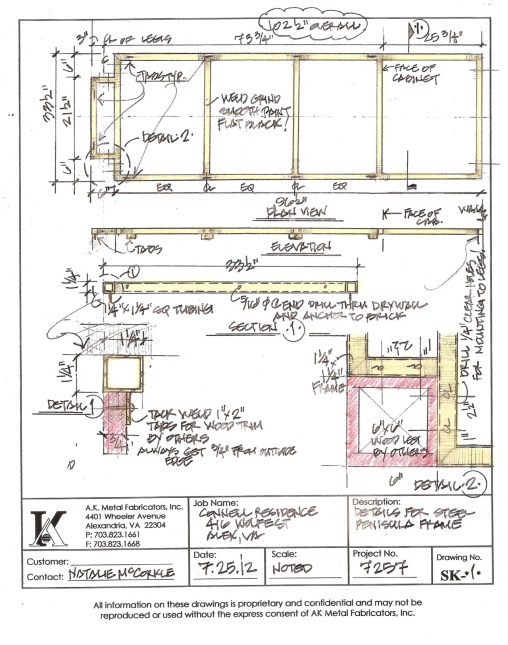 102½" OVERALL
3" ℄ OF LEGS 73¾" 25¾"
6"
33½"
21½"
6"
TABS TYP.
FACE OF
CABINET
WELD GRIND
SMOOTH PAINT
FLAT BLACK!
DETAIL·2·
6" EQ ℄ EQ ℄ EQ
96½"
PLAN VIEW
FACE OF
CAB.
WALL
TABS
ELEVATION
33½"
1¼"
1¼" x 1¼" SQ TUBING
5/16" Ø @ END DRILL THRU DRYWALL
AND ANCHOR TO BRICK
SECTION 1
DRILL ¼" CLEAR HOLES
FOR MOUNTING TO LEGS
1¼"
1¼"
DETAIL 1
TACK WELD 1"x2"
TABS FOR WOOD TRIM
BY OTHERS
ALWAYS SET ¾" FROM OUTSIDE
EDGE
1¼"
1¼"
FRAME
2½"
2½"
6"x6"
WOOD LEG
BY OTHERS
6"
DETAIL·2·
A.K. Metal Fabricators, Inc.
4401 Wheeler Avenue
Alexandria, VA 22304
P: 703.823.1661
F: 703.823.1668
Job Name:
CONNELL RESIDENCE
416 WOLFEST
ALEX, VA
Description:
DETAILS FOR STEEL
PENISULA FRAME
Customer:
Contact: NATALIE McCORKLE
Date:
7.25.12
Scale:
NOTED
Project No.
7257
Drawing No.
SK-·1·
All information on these drawings is proprietary and confidential and may not be
reproduced or used without the express consent of AK Metal Fabricators, Inc.